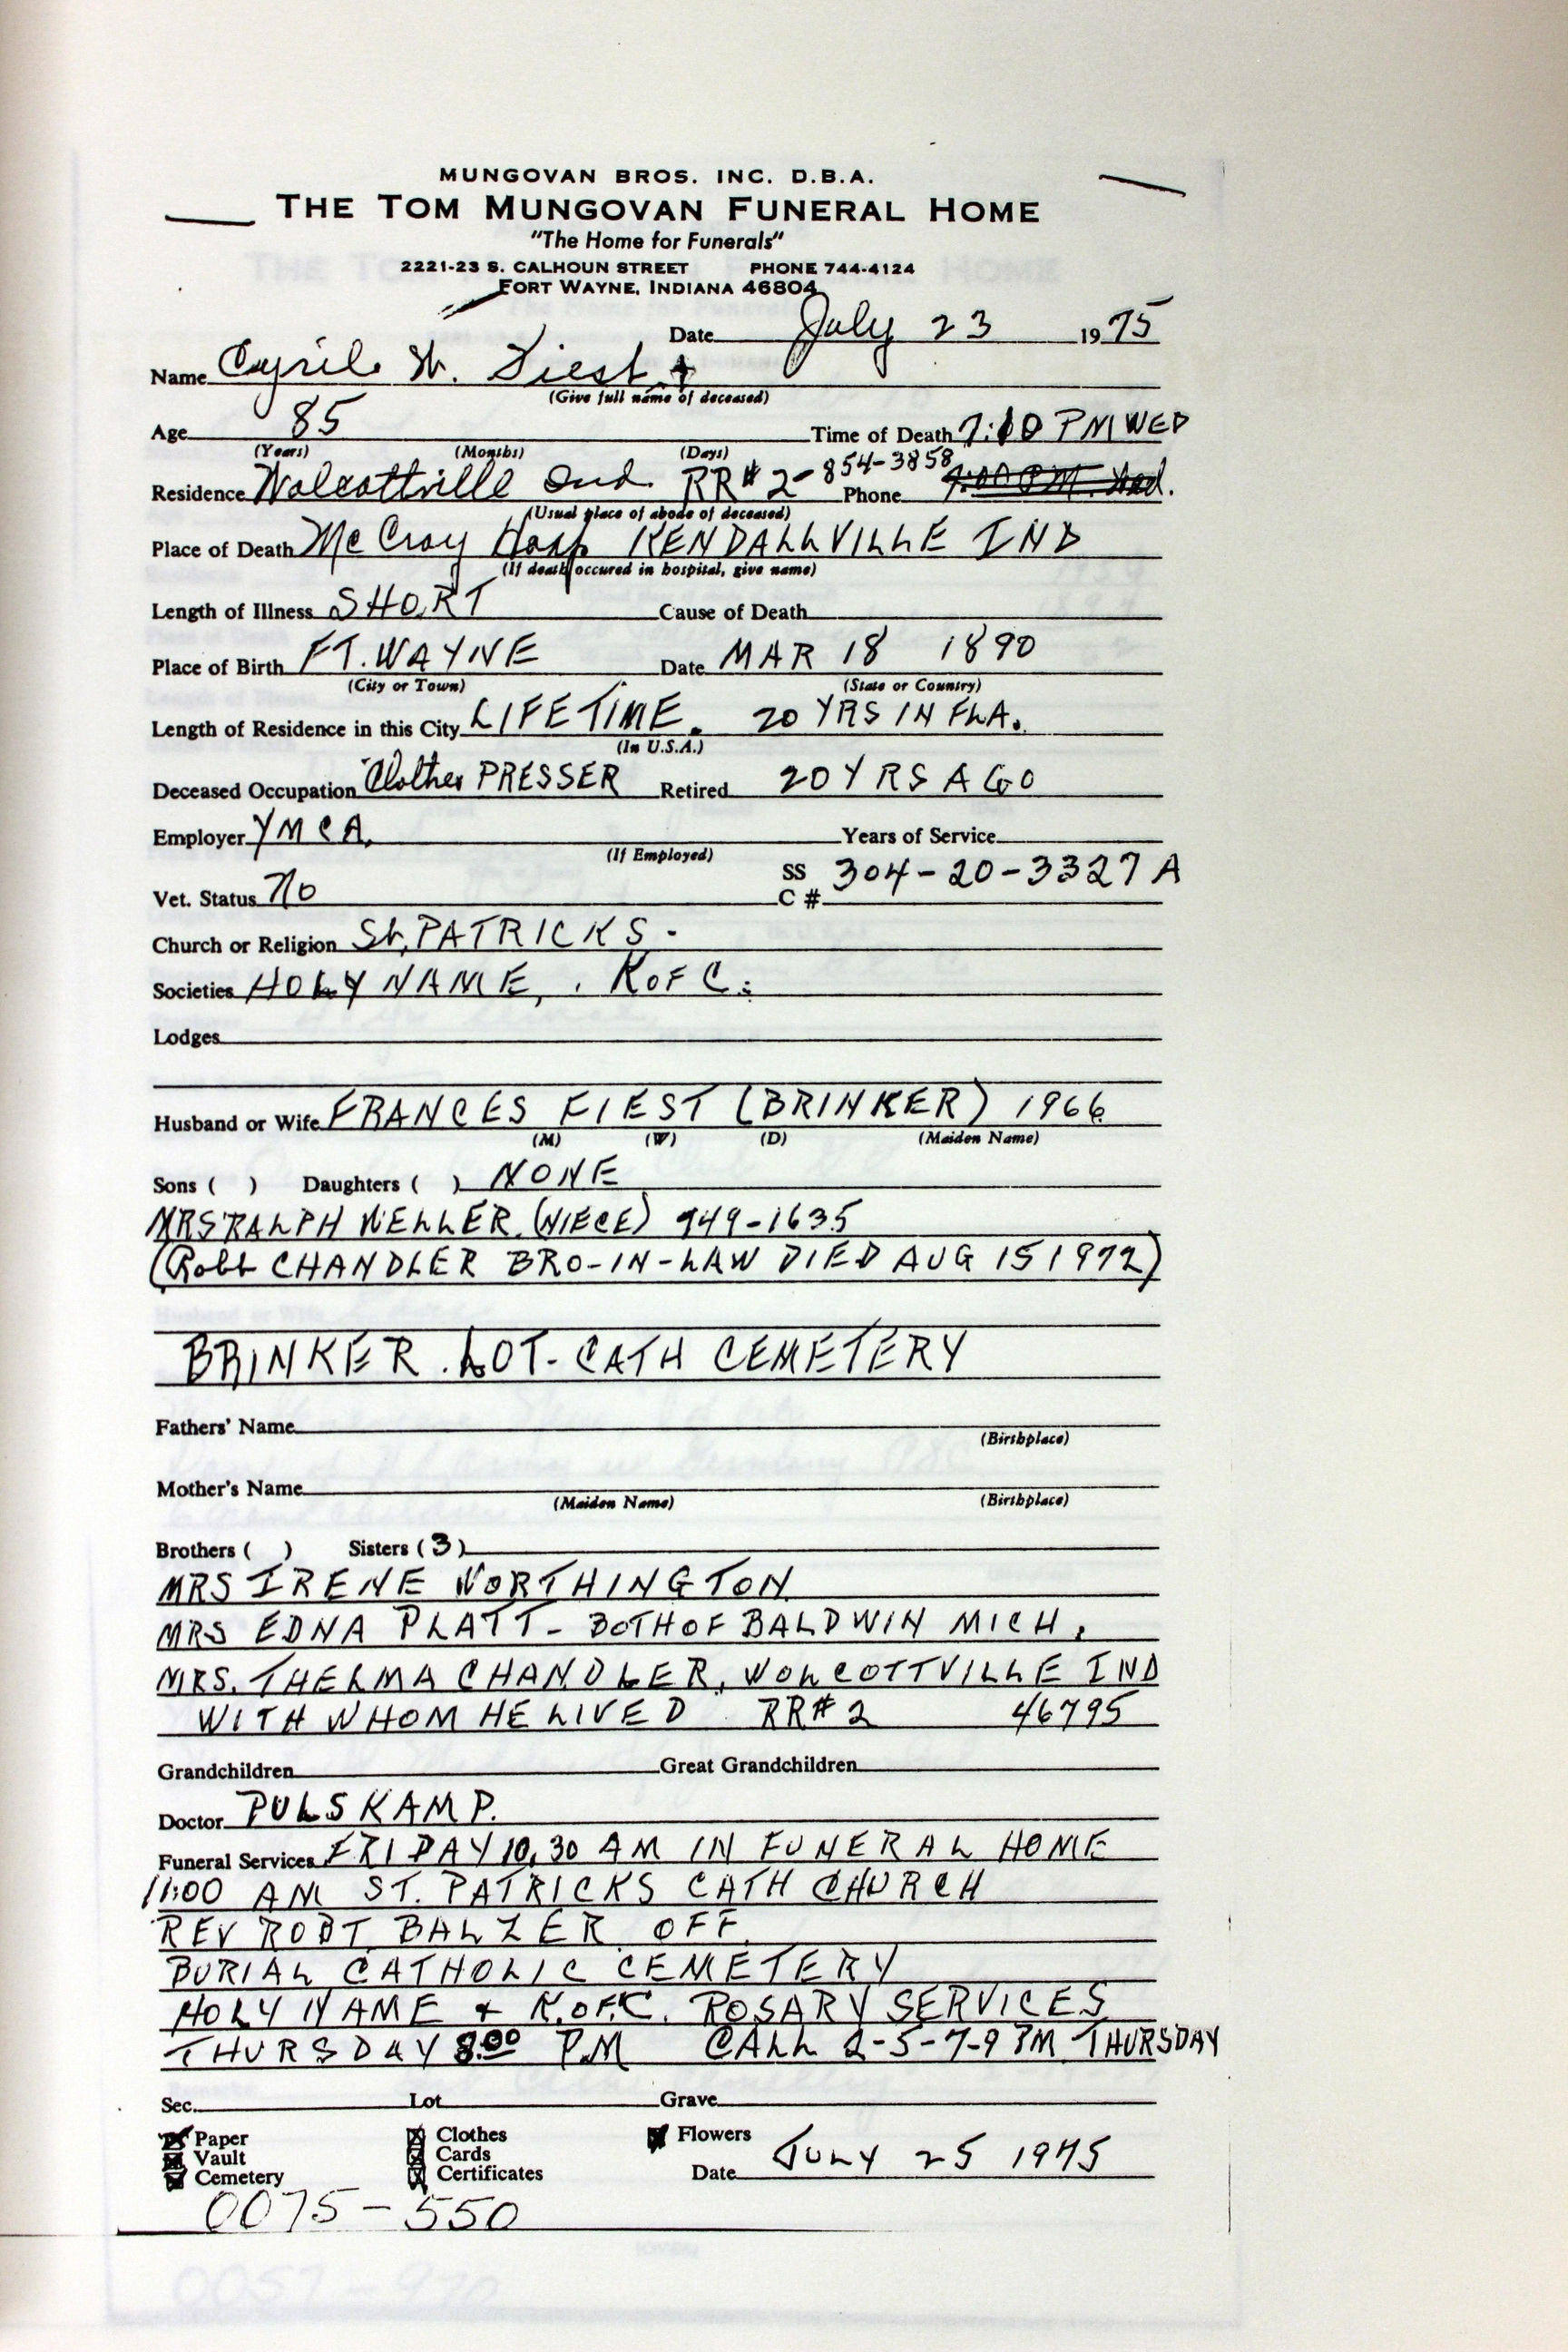 MUNGOVAN BROS. INC. D.B.A.
THE TOM MUNGOVAN FUNERAL HOME
"The Home for Funerals"
2221-23 S. CALHOUN STREET PHONE 744-4124
FORT WAYNE, INDIANA 46804
Date July 23 1975
Name Cyril W. Fiest
(Give full name of deceased)
Age 85 Time of Death 7:10 PM WED
(Years) (Months) (Days)
Residence Wolcottville Ind. RR#2- 854-3858 Phone
(Usual place of abode of deceased)
Place of Death McCray Hosp KENDALLVILLE IND
(If death occured in hospital, give name)
Length of Illness SHORT Cause of Death
Place of Birth FT. WAYNE Date MAR 18 1890
(City or Town) (State or Country)
Length of Residence in this City LIFETIME. 20 YRS IN FLA.
(In U.S.A.)
Deceased Occupation Clothes PRESSER Retired 20 YRS AGO
Employer YMCA. Years of Service
(If Employed)
Vet. Status No SS C # 304-20-3327 A
Church or Religion St. PATRICKS -
Societies HOLY NAME, . K OF C.
Lodges
Husband or Wife FRANCES FIEST (BRINKER) 1966
(M) (W) (D) (Maiden Name)
Sons ( ) Daughters ( ) NONE
MRS RALPH WELLER. (NIECE) 749-1635
(Robt CHANDLER BRO-IN-LAW DIED AUG 15 1972)
BRINKER . LOT - CATH CEMETERY
Fathers' Name
(Birthplace)
Mother's Name
(Maiden Name) (Birthplace)
Brothers ( ) Sisters (3)
MRS IRENE WORTHINGTON
MRS EDNA PLATT - BOTH OF BALDWIN MICH.
MRS. THELMA CHANDLER, WOLCOTTVILLE IND
WITH WHOM HE LIVED RR#2 46795
Grandchildren Great Grandchildren
Doctor PULSKAMP.
Funeral Services FRIDAY 10.30 AM IN FUNERAL HOME
11:00 AM ST. PATRICKS CATH CHURCH
REV ROBT. BALZER OFF.
BURIAL CATHOLIC CEMETERY
HOLY NAME + K. OF. C. ROSARY SERVICES
THURSDAY 8:00 PM CALL 2-5-7-9 PM THURSDAY
Sec. Lot Grave
Paper Clothes Flowers
Vault Cards
Cemetery Certificates Date JULY 25 1975
0075-550